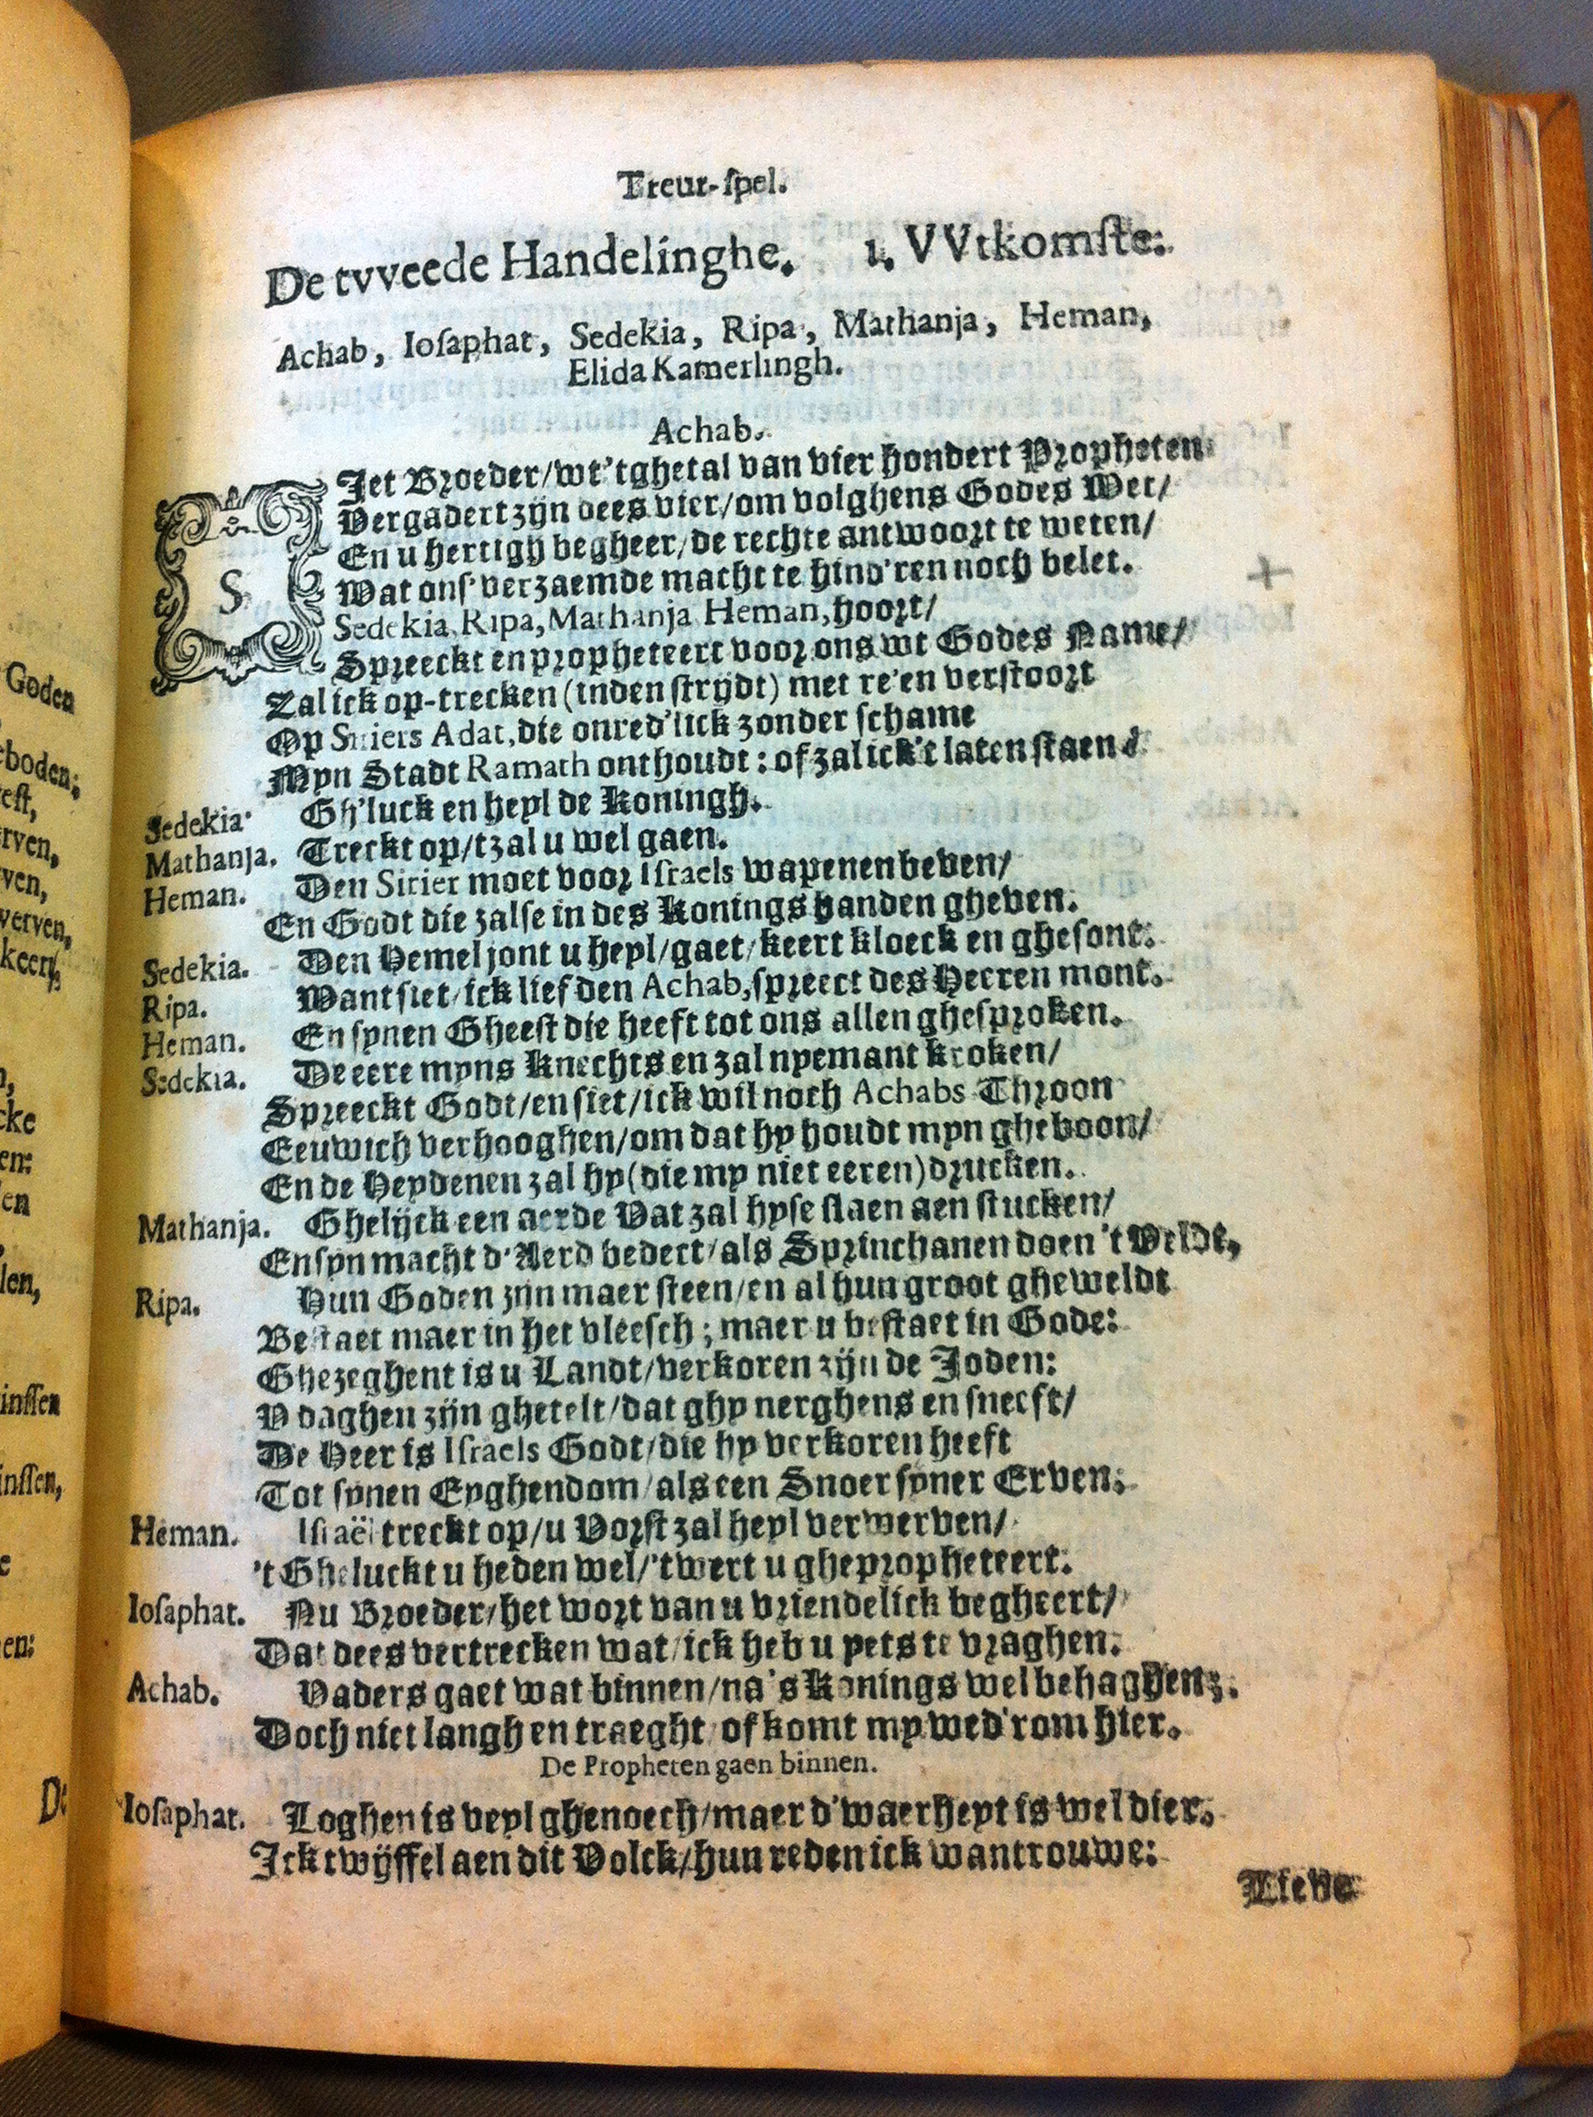 Treur-spel.
De tvveede Handelinghe. 1. VVtkomste.
Achab, Iosaphat, Sedekia, Ripa, Mathanja, Heman,
Elida Kamerlingh.
Achab.
SJet Broeder/wt'tghetal van vier hondert Propheten
Vergadert zijn dees vier/om volghens Godes Wet/
En u hertigh begheer/de rechte antwoort te weten/
Wat ons' verzaemde macht te hind'ren noch belet.
Sedekia, Ripa, Mathanja Heman, hoort/
Spreeckt en propheteert voor ons wt Godes Name/
Zal ick op-trecken (inden strijdt) met re'en verstoort
Op Siriers Adat, die onred'lick zonder schame
Myn Stadt Ramath onthoudt: of zal ick't laten staen?
Sedekia. Gh'luck en heyl de Koningh.
Mathanja. Treckt op/tzal u wel gaen.
Heman. Den Sirier moet voor Israels wapenen beven/
En Godt die zalse in des Konings handen gheven.
Sedekia. Den Hemel jont u heyl/gaet/keert kloeck en ghesont.
Ripa. Want siet/ick lief den Achab, spreect des Heeren mont.
Heman. En synen Gheest die heeft tot ons allen ghesproken.
Sedekia. De eere myns Knechts en zal nyemant kroken/
Spreeckt Godt/en siet/ick wil noch Achabs Throon
Eeuwich verhooghen/om dat hy houdt myn gheboon/
En de Heydenen zal hy (die my niet eeren) drucken.
Mathanja. Ghelijck een aerde Vat zal hyse slaen aen stucken/
En syn macht d'Aerd bedect/als Sprinchanen doen 't Veldt,
Ripa. Hun Goden zijn maer steen/en al hun groot gheweldt
Bestaet maer in het vleesch; maer u bestaet in Gode:
Ghezeghent is u Landt/verkoren zijn de Joden:
V daghen zijn ghetelt/dat ghy nerghens en sneeft/
De Heer is Israels Godt/die hy verkoren heeft
Tot synen Eyghendom/als een Snoer syner Erven.
Heman. Israël treckt op/u Vorst zal heyl verwerven/
't Gheluckt u heden wel/'twert u ghepropheteert.
Iosaphat. Nu Broeder/het wort van u vriendelick begheert/
Dat dees vertrecken wat/ick heb u yets te vraghen.
Achab. Vaders gaet wat binnen/na 's Konings welbehaghen.
Doch niet langh en traeght of komt my wed'rom hier.
De Propheten gaen binnen.
Iosaphat. Loghen is veyl ghenoech/maer d'waerheyt is wel dier.
Ick twijffel aen dit Volck/hun reden ick wantrouwe:
Lieve
Goden
boden;
est,
rven,
ven,
verven,
keert,
cke
en:
en
len,
inssen
inssen,
en: